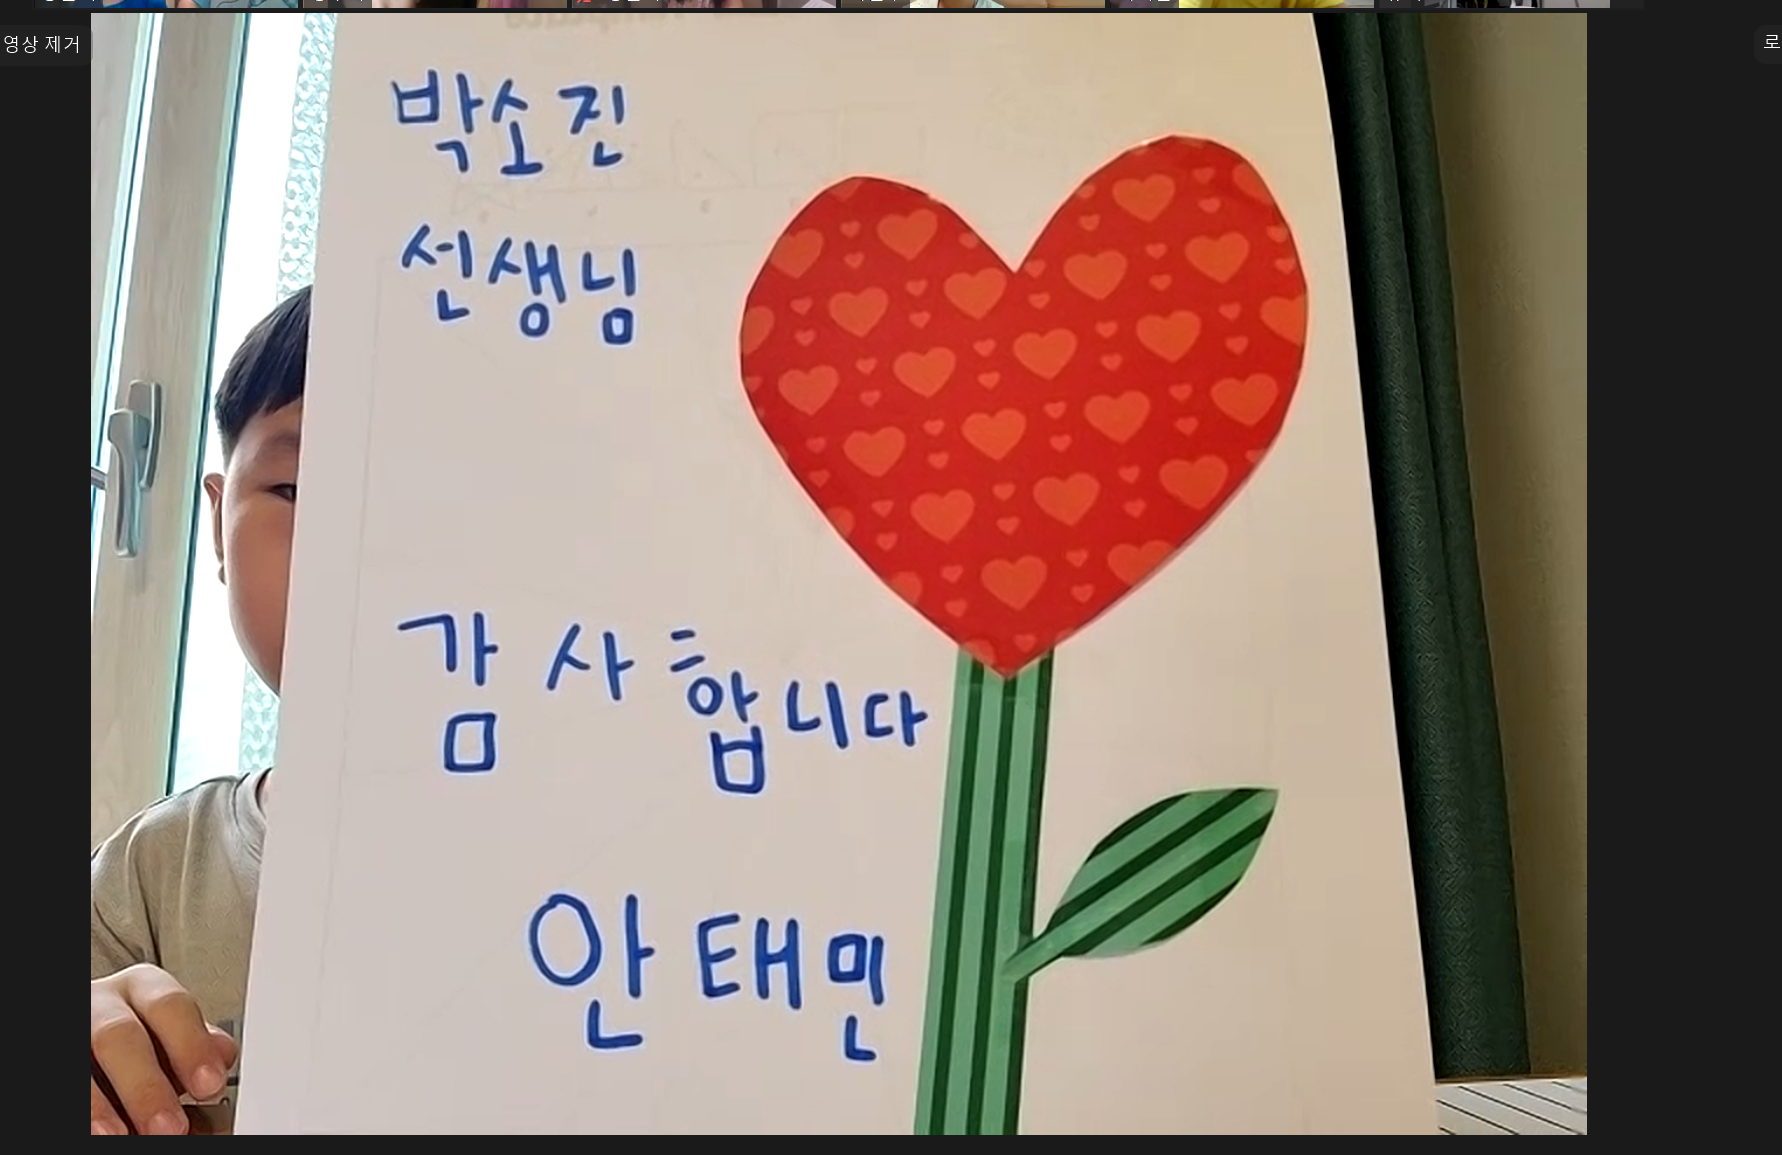 영상 제거
박소진
선생님
감사합니다
안태민